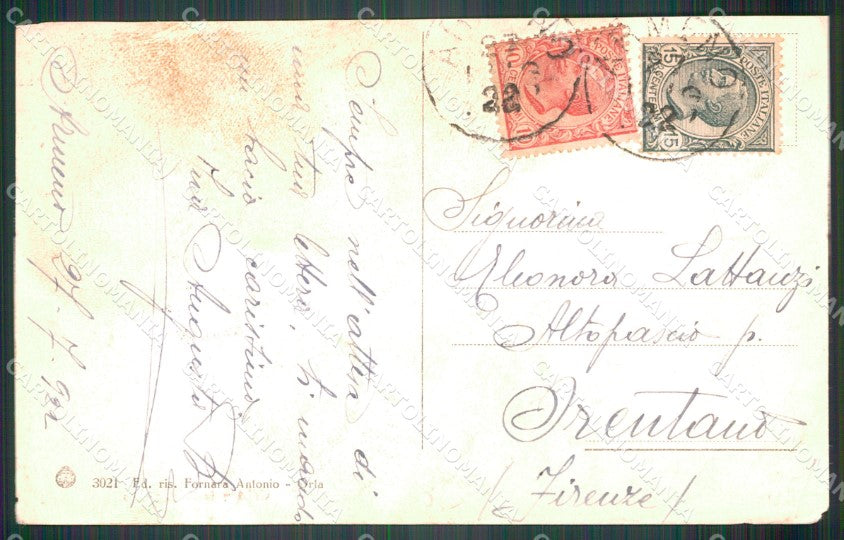 Armeno 27. 7. 922
Sempre nell'attesa di
una tua lettera, ti mando
un bacio carissimo
tuo Augusto
3021 Ed. ris. Fornara Antonio - Orta
10 CENT. POSTE ITALIANE 10
15 CENTESIMI POSTE ITALIANE 15
22
22
Signorina
Eleonora Lattanzi
Altopascio p.
Orentano
/ Firenze /
CARTOLINOMANIA